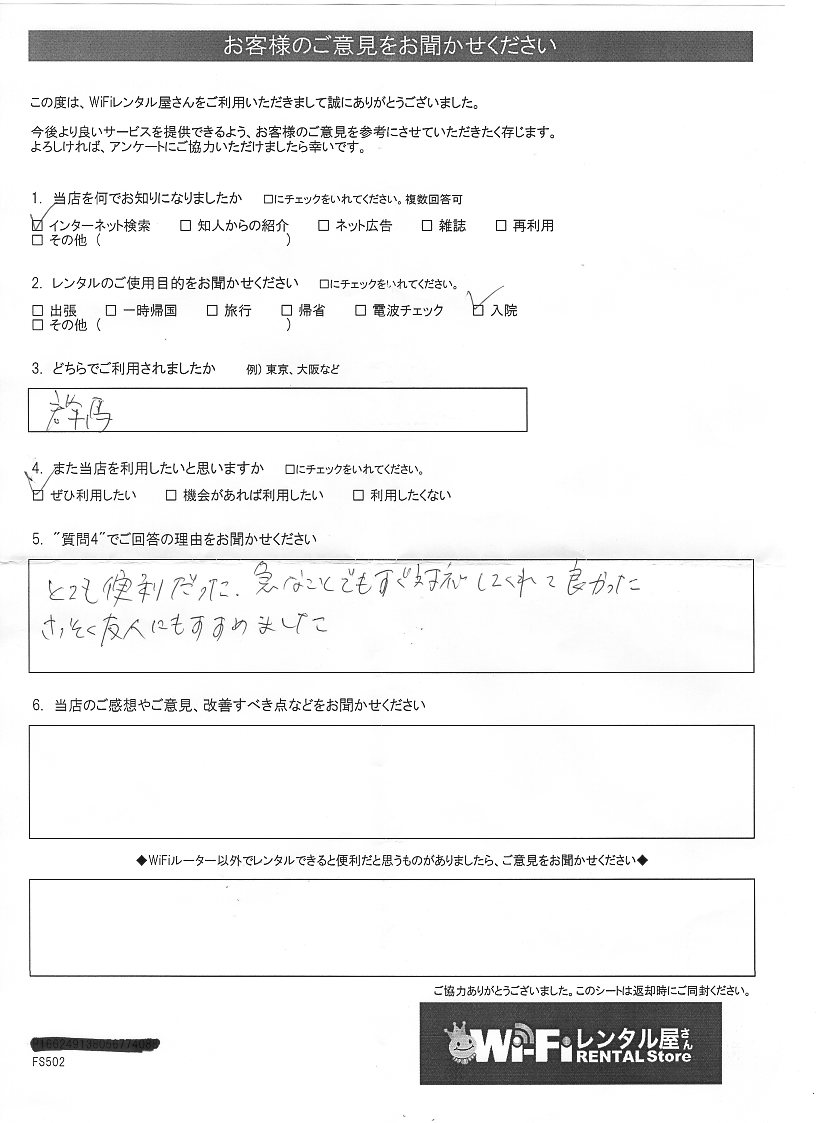 お客様のご意見をお聞かせください
この度は、WiFiレンタル屋さんをご利用いただきまして誠にありがとうございました。
今後より良いサービスを提供できるよう、お客様のご意見を参考にさせていただきたく存じます。
よろしければ、アンケートにご協力いただけましたら幸いです。
1. 当店を何でお知りになりましたか □にチェックをいれてください。複数回答可
☑ インターネット検索 □ 知人からの紹介 □ ネット広告 □ 雑誌 □ 再利用
□ その他 ( )
2. レンタルのご使用目的をお聞かせください □にチェックをいれてください。
□ 出張 □ 一時帰国 □ 旅行 □ 帰省 □ 電波チェック ☑ 入院
□ その他 ( )
3. どちらでご利用されましたか 例) 東京、大阪など
群馬
4. また当店を利用したいと思いますか □にチェックをいれてください。
☑ ぜひ利用したい □ 機会があれば利用したい □ 利用したくない
5. "質問4"でご回答の理由をお聞かせください
とても便利だった、急なことでもすぐ対応してくれて良かった
さっそく友人にもすすめました
6. 当店のご感想やご意見、改善すべき点などをお聞かせください
◆WiFiルーター以外でレンタルできると便利だと思うものがありましたら、ご意見をお聞かせください◆
ご協力ありがとうございました。このシートは返却時にご同封ください。
FS502
Wi-Fiレンタル屋さん
RENTAL Store